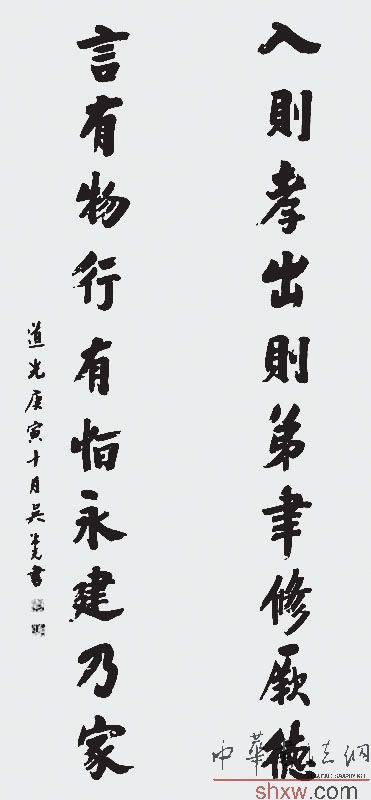 入則孝出則弟聿修厥德
言有物行有恒永建乃家
道光庚寅十月吳榮光書
shxw.com